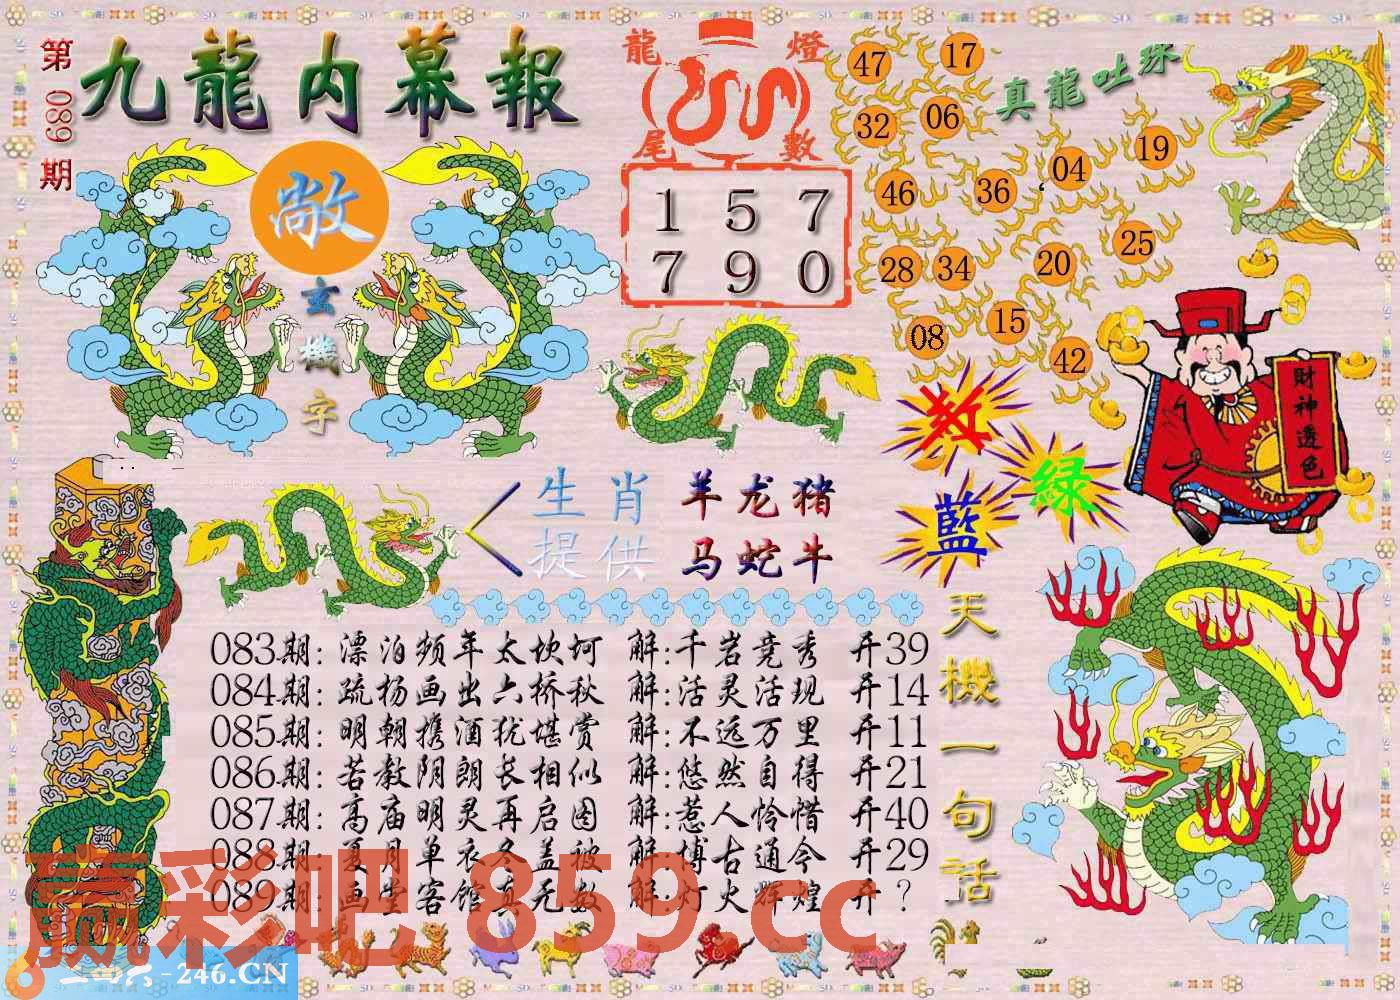 第089期
九龍内幕報
敞
玄機字
龍燈
尾數
1 5 7
7 9 0
真龍吐珠
47 17
32 06
46 36 04 19
28 34 20 25
08 15 42
財神透色
红
绿
藍
生肖 羊龙猪
提供 马蛇牛
天機一句話
083期: 漂泊频年太坎坷 解:千岩竞秀 开39
084期: 疏杨画出六桥秋 解:活灵活现 开14
085期: 明朝携酒犹堪赏 解:不远万里 开11
086期: 若教阴朗长相似 解:悠然自得 开21
087期: 高庙明灵再启图 解:惹人怜惜 开40
088期: 夏月单衣冬盖被 解:博古通今 开29
089期: 画堂客馆真无数 解:灯火辉煌 开？
赢彩吧 859.cc
二四六-246.CN